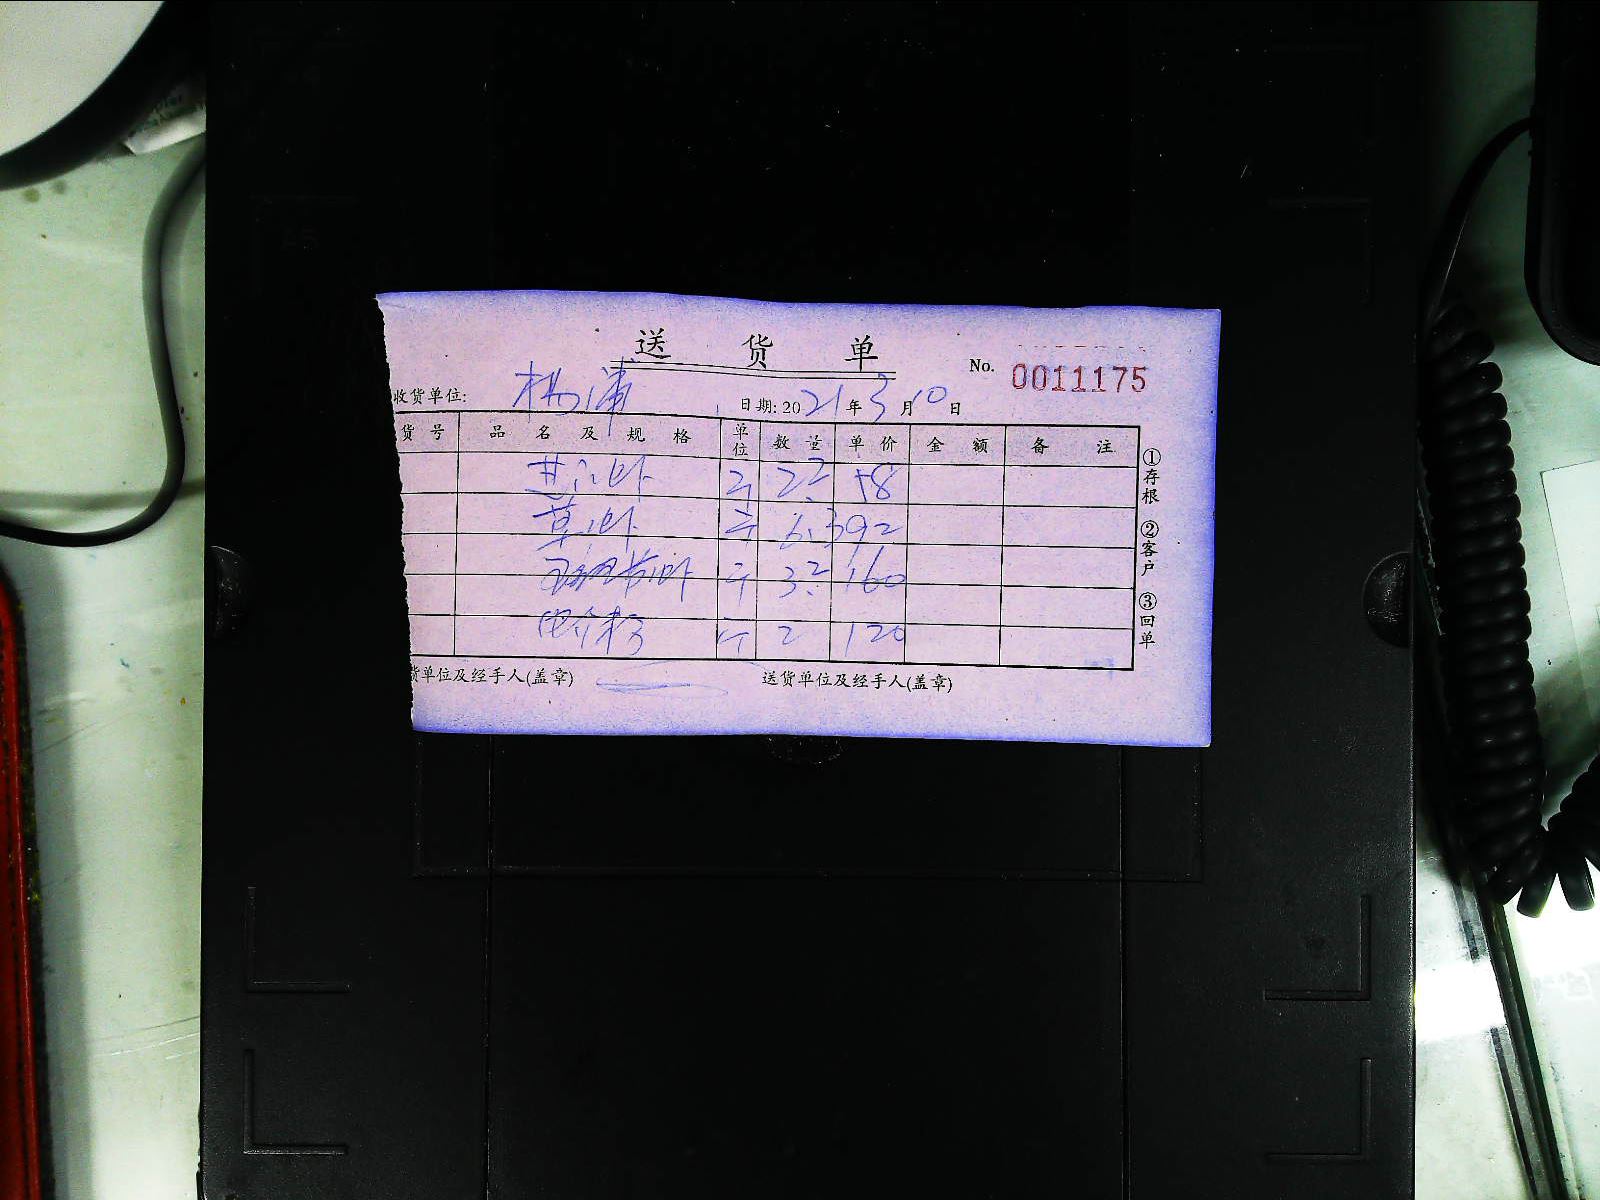 送 货 单
No. 0011175
收货单位: 杨浦 日期: 2021年3月10日
货号 品名及规格 单位 数量 单价 金额 备注
斤 58
草虾 斤 6.3 92
斤 3.2 160
个 2 120
货单位及经手人(盖章) 送货单位及经手人(盖章)
①存根 ②客户 ③回单